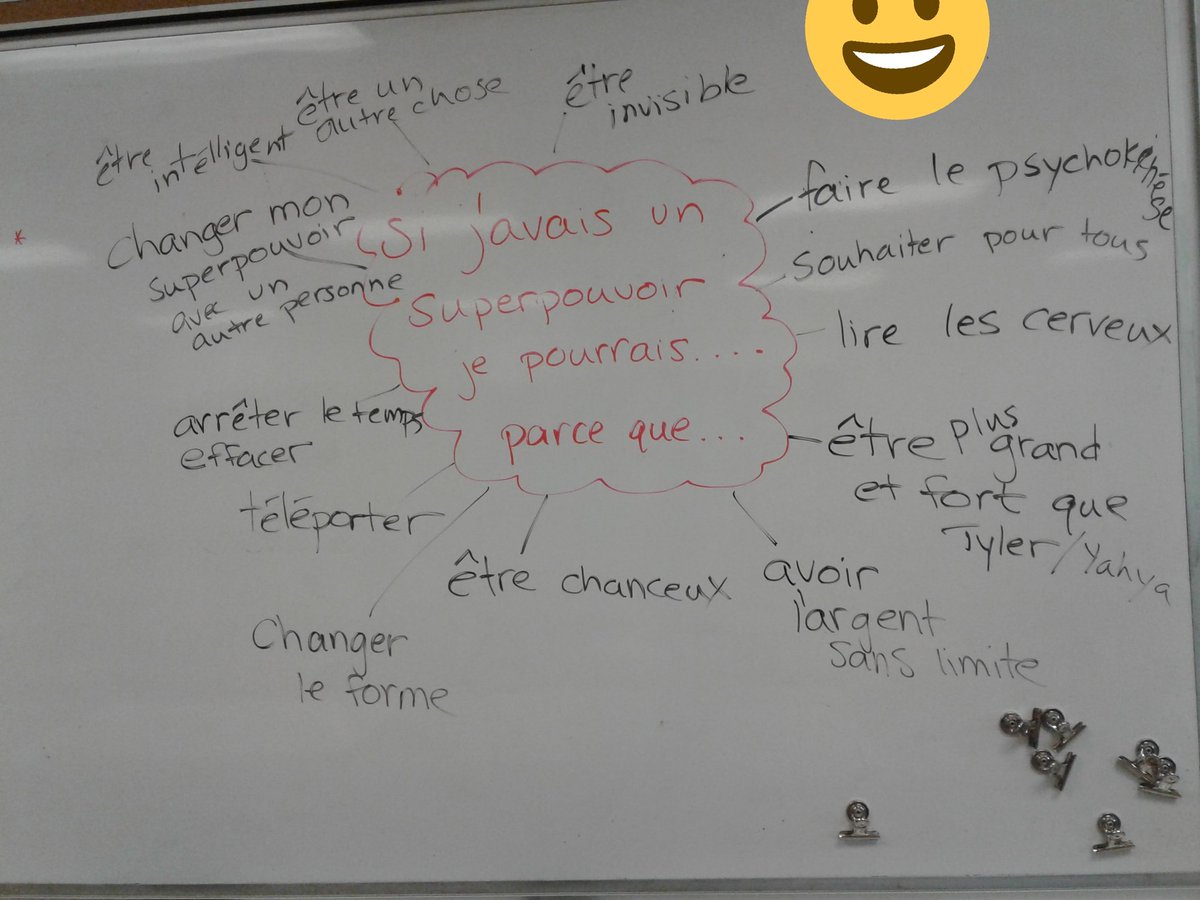 Si j'avais un
superpouvoir
je pourrais....
parce que...
être un
autre chose
être
invisible
faire le psychokenèse
souhaiter pour tous
lire les cerveux
être plus
grand
et fort que
Tyler/Yahya
avoir
l'argent
sans limite
être chanceux
Changer
le forme
téléporter
arrêter le temps
effacer
Changer mon
superpouvoir
avec un
autre personne
être
intélligent
*